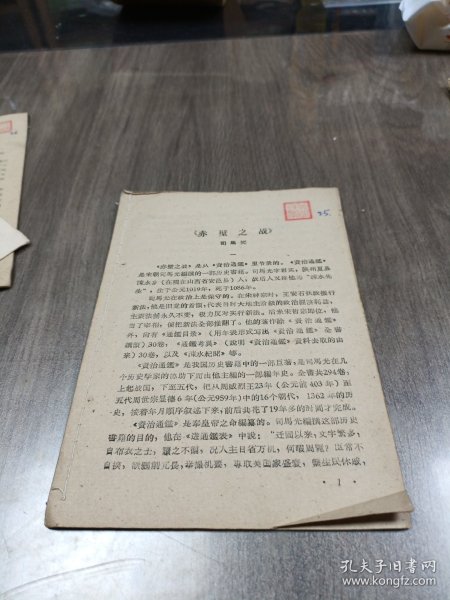 25.
《赤壁之战》
司馬光
一
《赤壁之战》是从《資治通鑑》里节录的。《資治通鑑》
是宋朝司馬光編撰的一部历史書籍。司馬光字君实，陝州夏县
涑水乡（在現在山西省安邑县）人，故后人又称他为“涑水先
生”，生于公元1019年，死于1086年。
司馬光在政治上是保守的。在宋神宗时，王安石执政推行
新法，他是旧党的首領，代表当时大地主阶級的政治經济利益，
主張祖法永久不变，极力反对实行新法。后来宋哲宗卽位，他
当了宰相，便把新法全部推翻了。他的著作除《資治通鑑》
外，尚有《通鑑目录》（用年表形式写出《資治通鑑》全書
綱要）30卷，《通鑑考異》（說明《資治通鑑》資料去取的由
来）30卷，以及《涑水紀聞》等。
《資治通鑑》是我国历史書籍中的一部巨著，是司馬光在几
个历史学家的协助下而由他主編的一部編年史。全書共294卷，
上起战国，下迄五代，把从周威烈王23年（公元前403年）至
五代周世宗显德6年（公元959年）中的16个朝代，1362年的历
史，按着年月順序叙述下来，前后共花了19年多的时間才完成。
《資治通鑑》是奉皇帝之命編纂的。司馬光編撰这部历史
書籍的目的，他在《进通鑑表》中說：“迁固以来，文字繁多，
自布衣之士，讀之不徧，况人主日省万机，何暇周覽？臣常不
自揆，欲删削冗長，举撮机要，專取关国家盛衰，繫生民休戚，
· 1 ·
孔夫子旧书网
www.kongfz.com